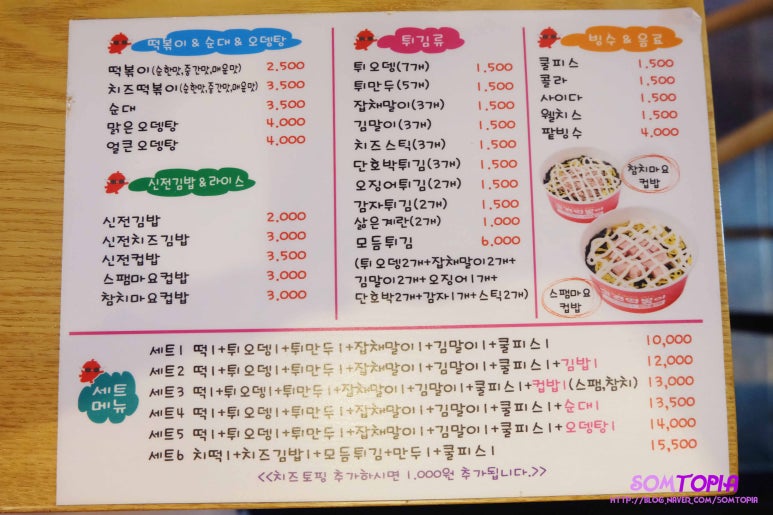 떡볶이 & 순대 & 오뎅탕
떡볶이(순한맛,중간맛,매운맛) 2.500
치즈떡볶이(순한맛,중간맛,매운맛) 3.500
순대 3.500
맑은 오뎅탕 4.000
얼큰 오뎅탕 4.000
신전김밥&라이스
신전김밥 2,000
신전치즈김밥 3,000
신전컵밥 3,000
스팸마요컵밥 3,000
참치마요컵밥 3,000
튀김류
튀오뎅(7개) 1.500
튀만두(5개) 1.500
잡채말이(3개) 1.500
김말이(3개) 1.500
치즈스틱(3개) 1.500
단호박튀김(3개) 1.500
오징어튀김(2개) 1.500
감자튀김(2개) 1.500
삶은계란(2개) 1.000
모듬튀김 6.000
(튀오뎅2개+잡채말이2개+
김말이2개+오징어1개+
단호박2개+감자1개+스틱2개)
빙수 & 음료
쿨피스 1.500
콜라 1.500
사이다 1.500
웰치스 1.500
팥빙수 4.000
참치마요
컵밥
스팸마요
컵밥
세트
메뉴
세트1 떡1+튀오뎅1+튀만두1+잡채말이1+김말이1+쿨피스1 10,000
세트2 떡1+튀오뎅1+튀만두1+잡채말이1+김말이1+쿨피스1+김밥1 12,000
세트3 떡1+튀오뎅1+튀만두1+잡채말이1+김말이1+쿨피스1+컵밥1(스팸,참치) 13,000
세트4 떡1+튀오뎅1+튀만두1+잡채말이1+김말이1+쿨피스1+순대1 13,500
세트5 떡1+튀오뎅1+튀만두1+잡채말이1+김말이1+쿨피스1+오뎅탕1 14,000
세트6 치떡1+치즈김밥1+모듬튀김+만두1+쿨피스1 15,500
<<치즈토핑 추가하시면 1.000원 추가됩니다.>>
SOMTOPIA
HTTP://BLOG.NAVER.COM/SOMTOPIA